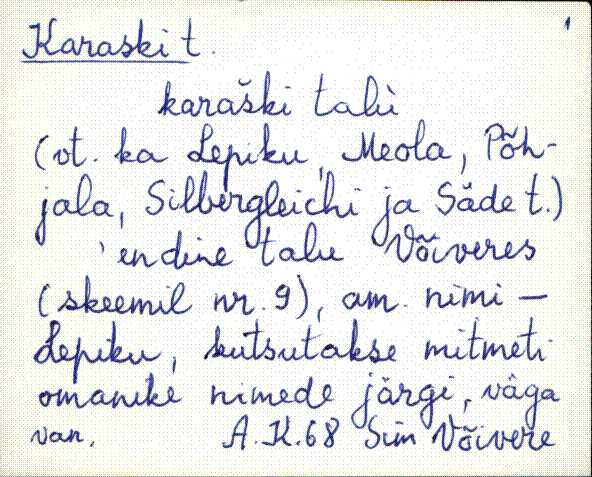 1
Karaski t.
karaški talù
(vt. ka Lepiku, Meola, Põh-
jala, Silbergleichi ja Säde t.)
'endine talu Võiveres
(skeemil nr. 9), am. nimi –
Lepiku, kutsutakse mitmeti
omanike nimede järgi, väga
van. A.K.68 Sim Võivere